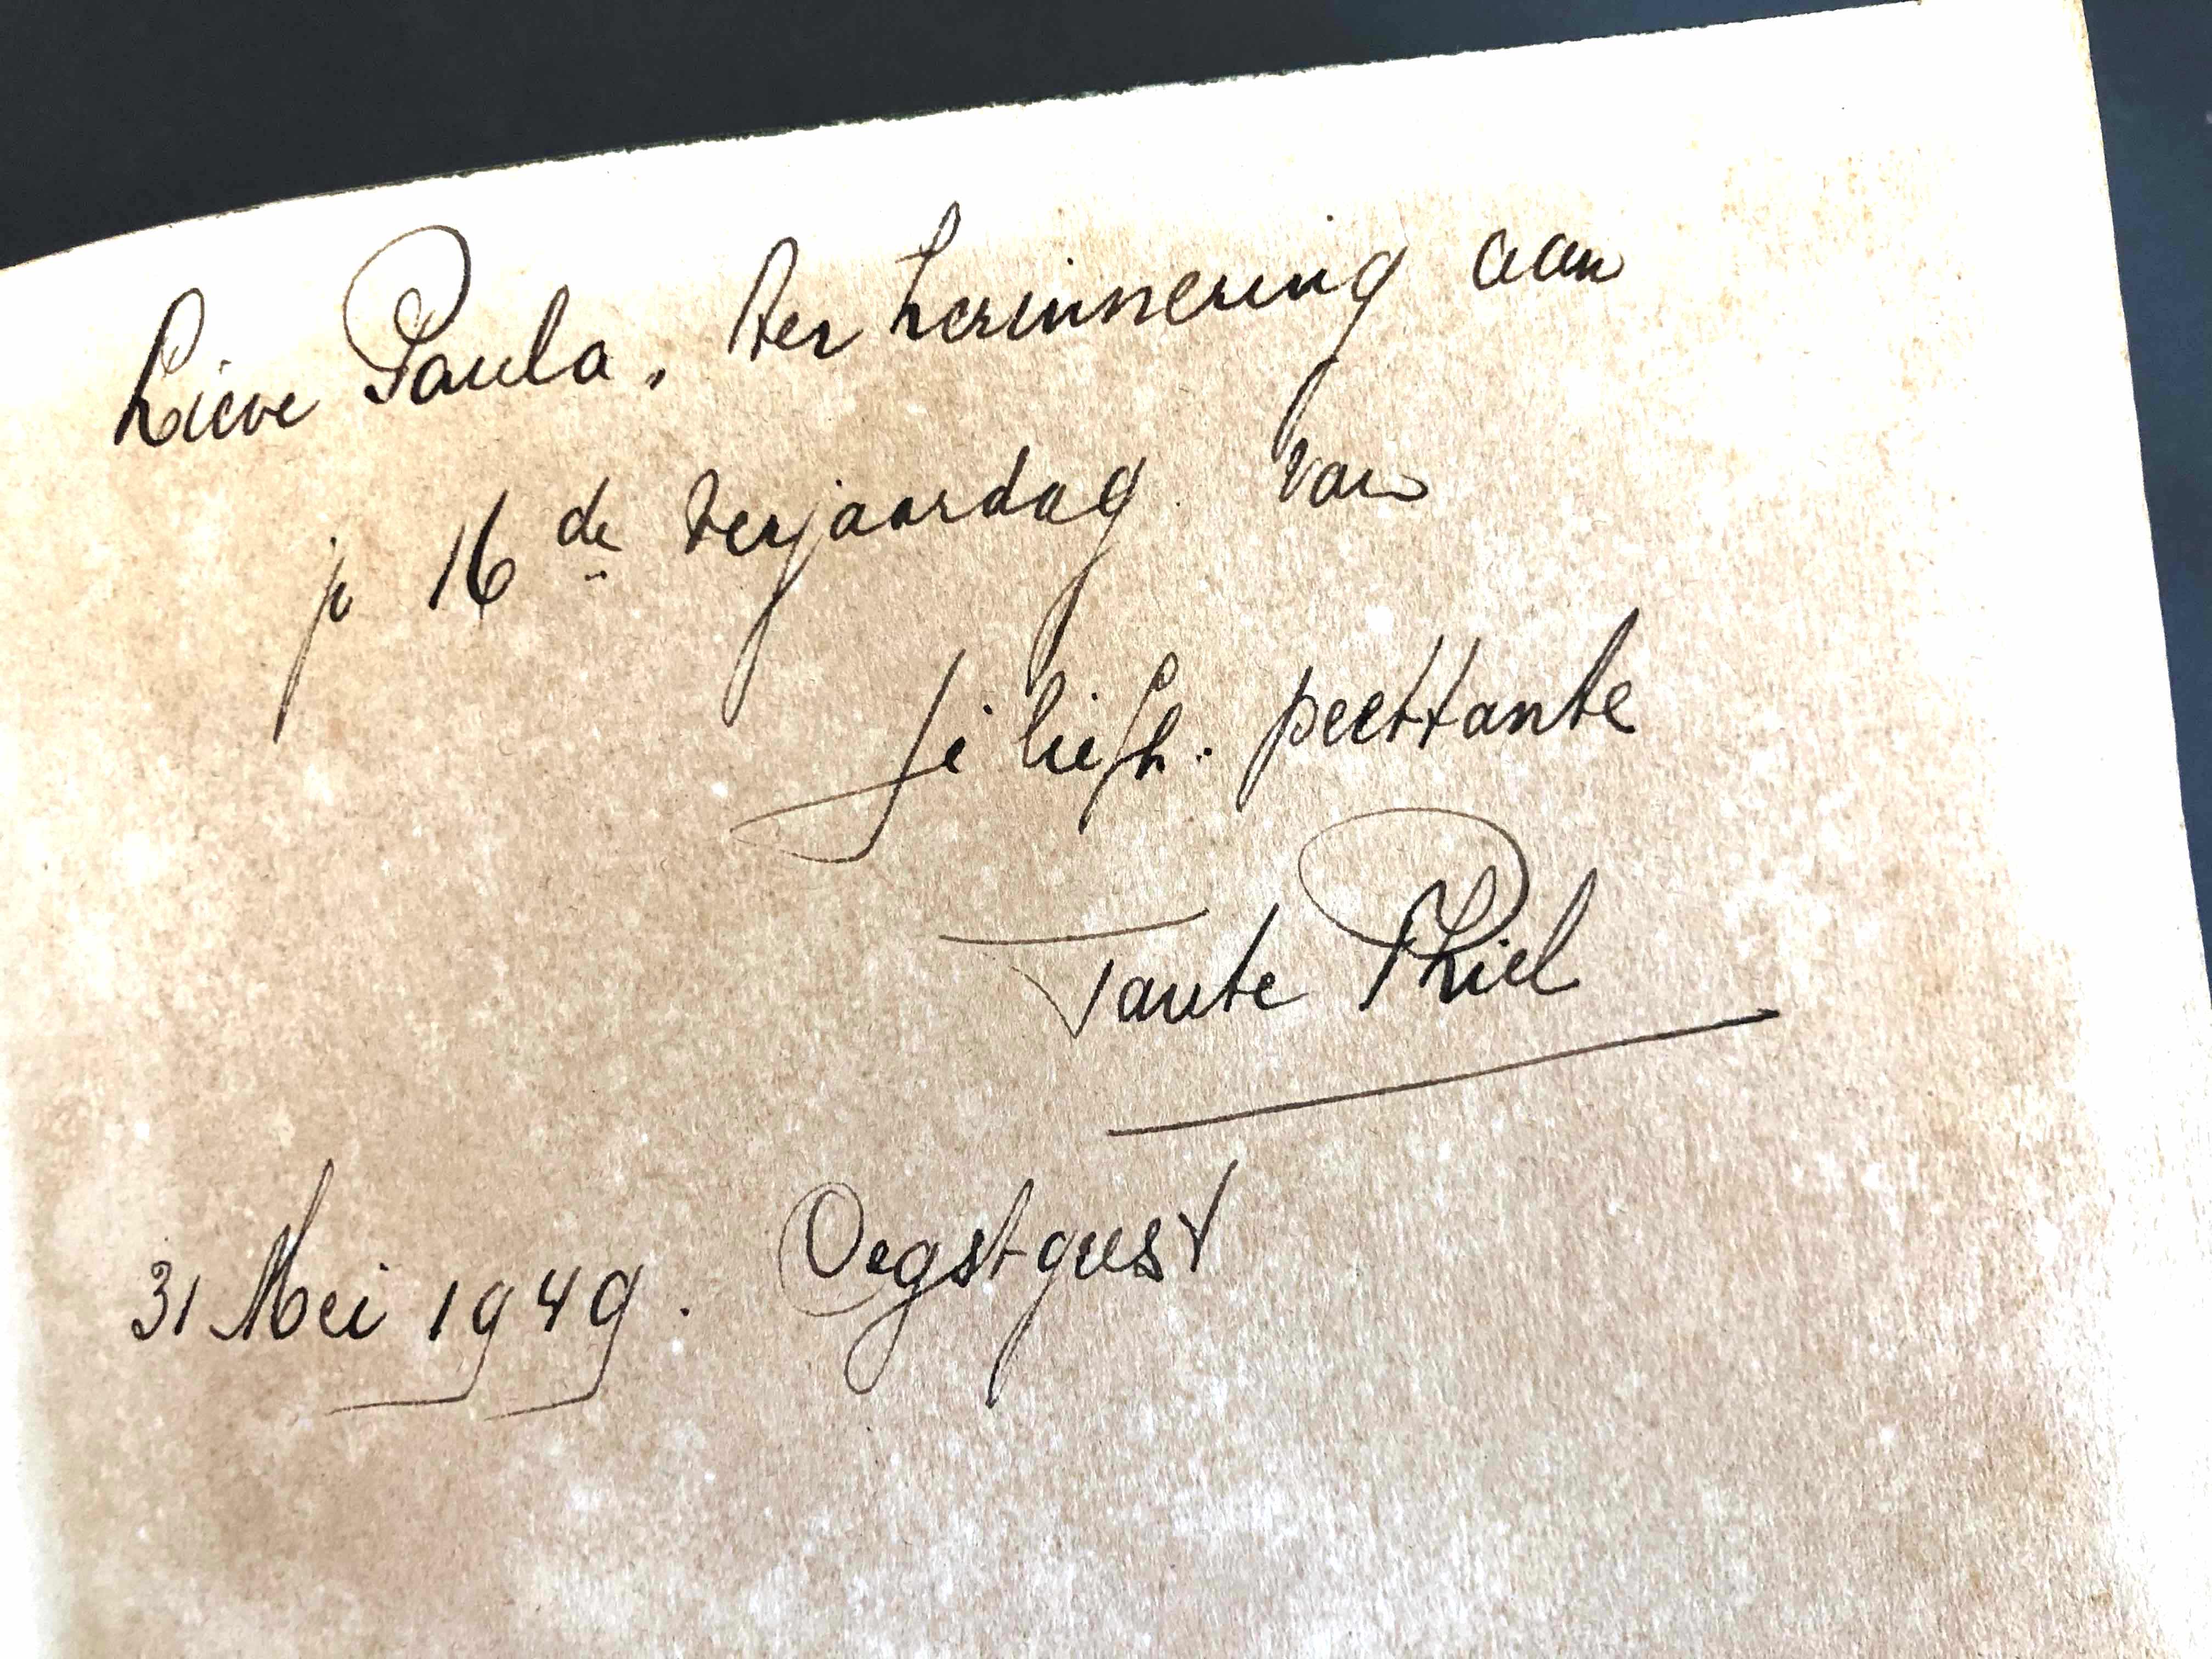 Lieve Paula, ter herinnering aan
je 16de verjaardag van
je liefh. peettante
Tante Phiel
31 Mei 1949. Oegstgeest